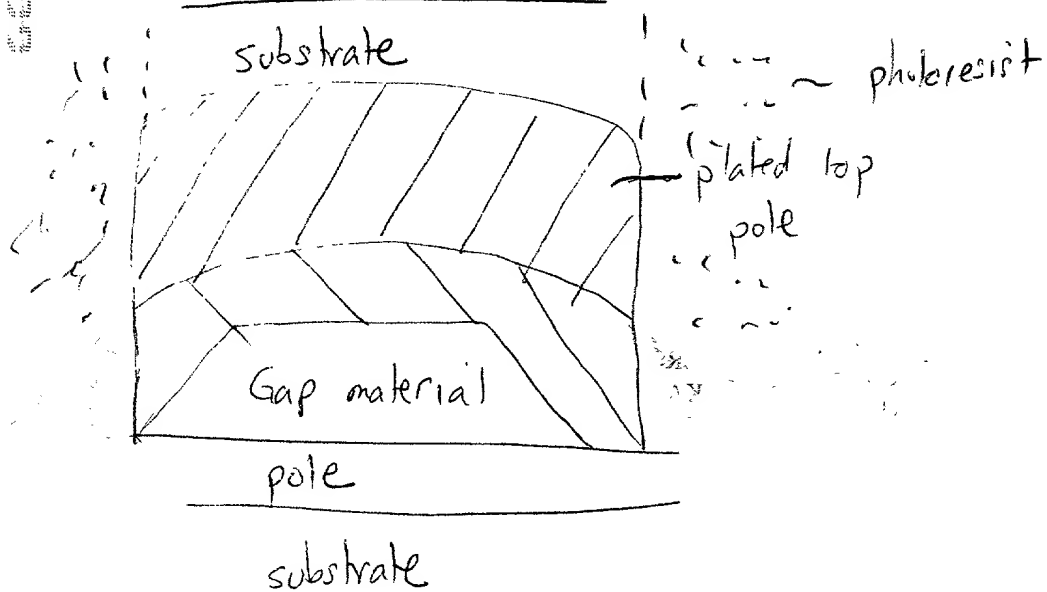 substrate
photoresist
plated top
pole
Gap material
pole
substrate